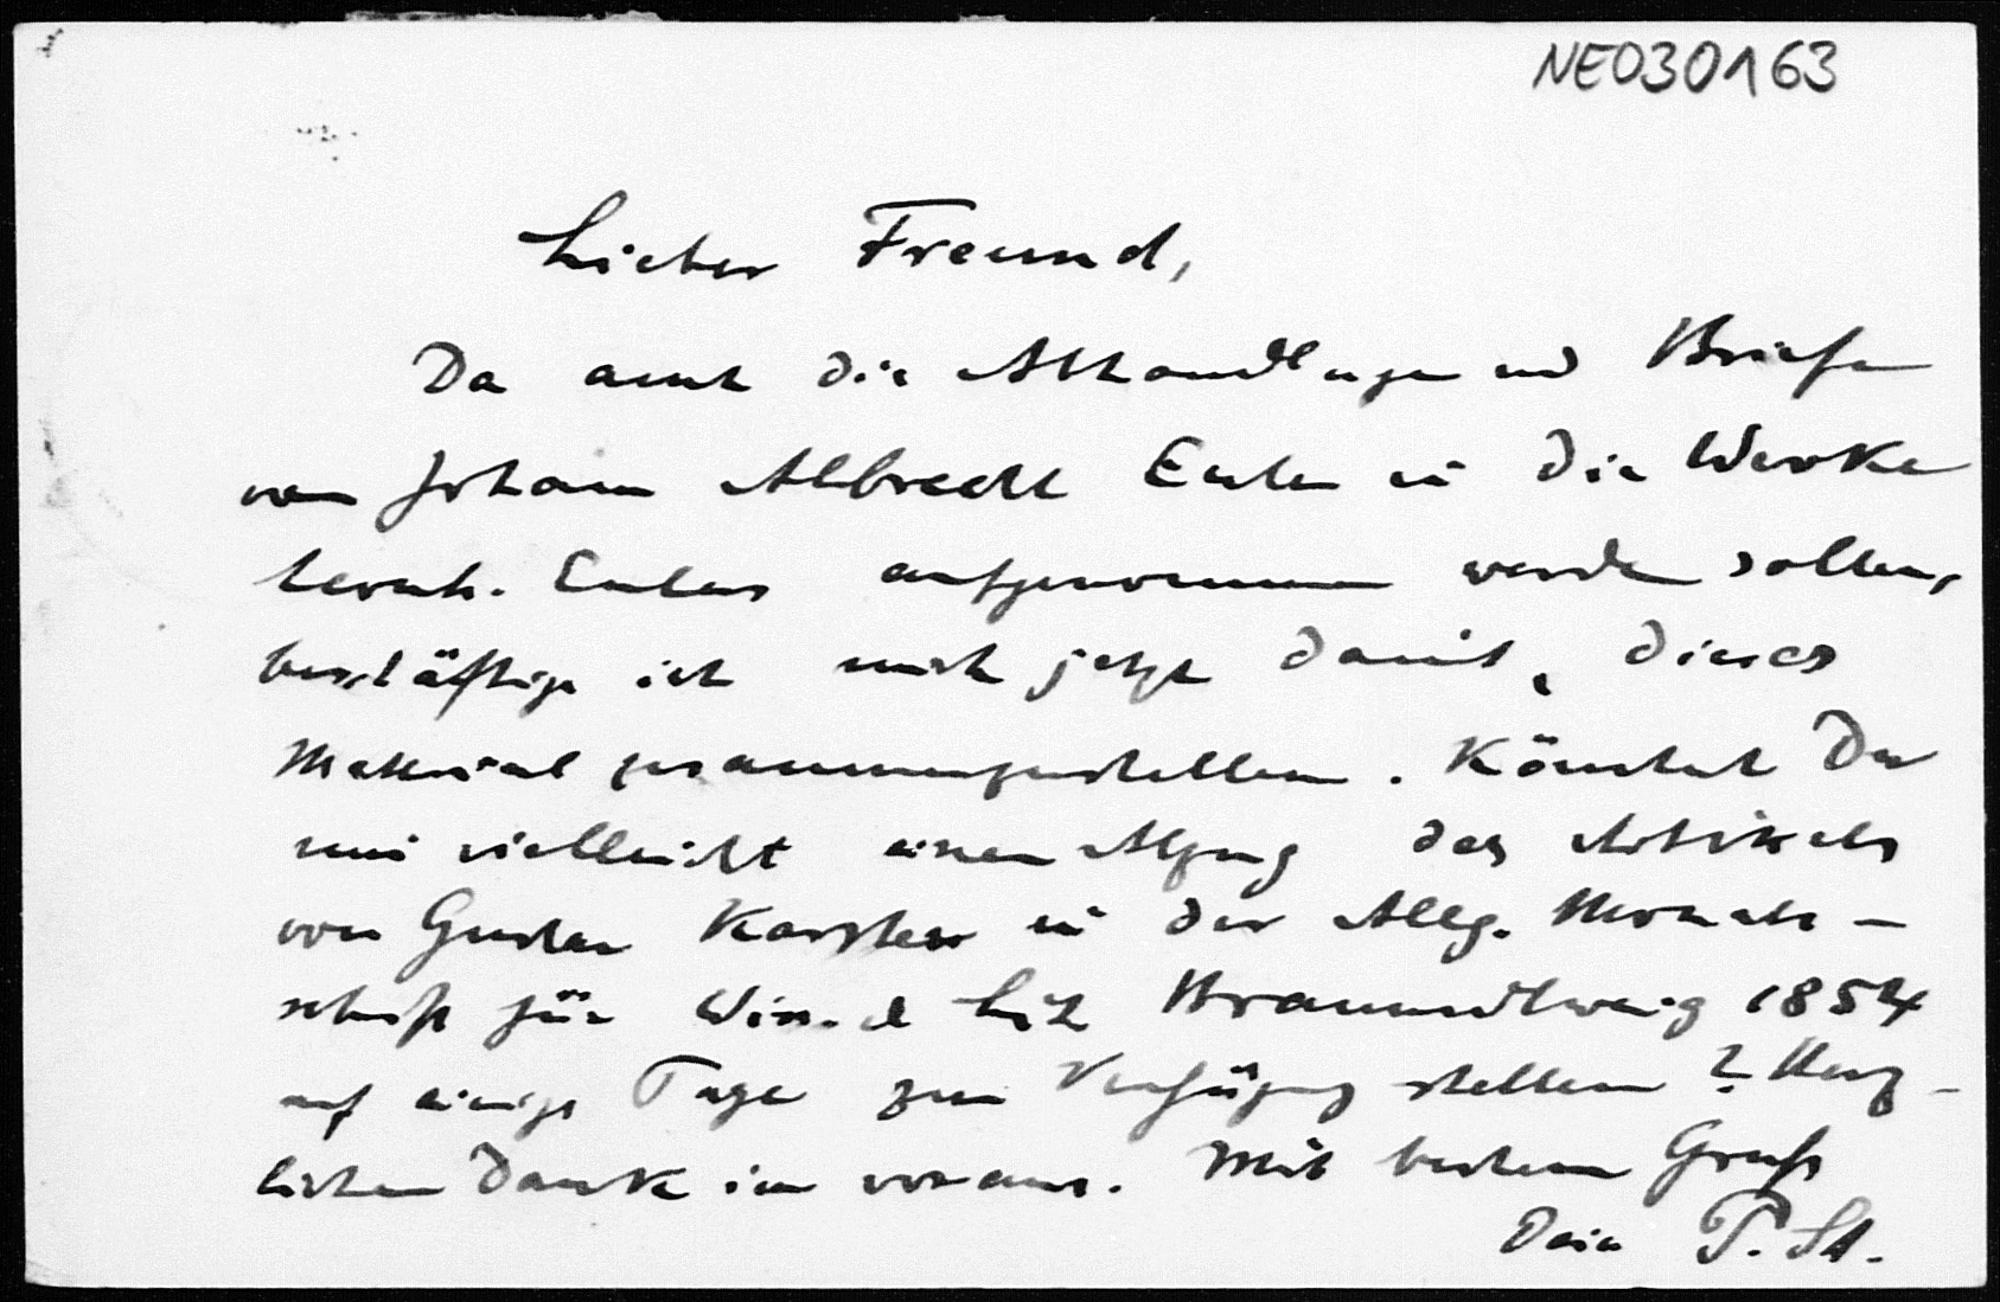 NE030163
Lieber Freund,
Da auch die Abhandlungen und Briefe
von Johann Albrecht Euler in die Werke
Leonh. Eulers aufgenommen werden sollen,
beschäftige ich mich jetzt damit, dieses
Material zusammenzustellen. Könntest Du
mir vielleicht einen Abzug des Artikels
von Gustav Karsten in der Allg. Monats-
schrift für Wiss. u. Lit. Braunschweig 1854
auf einige Tage zur Verfügung stellen? Herz-
lichen Dank im voraus. Mit bestem Gruß
Dein P. St.